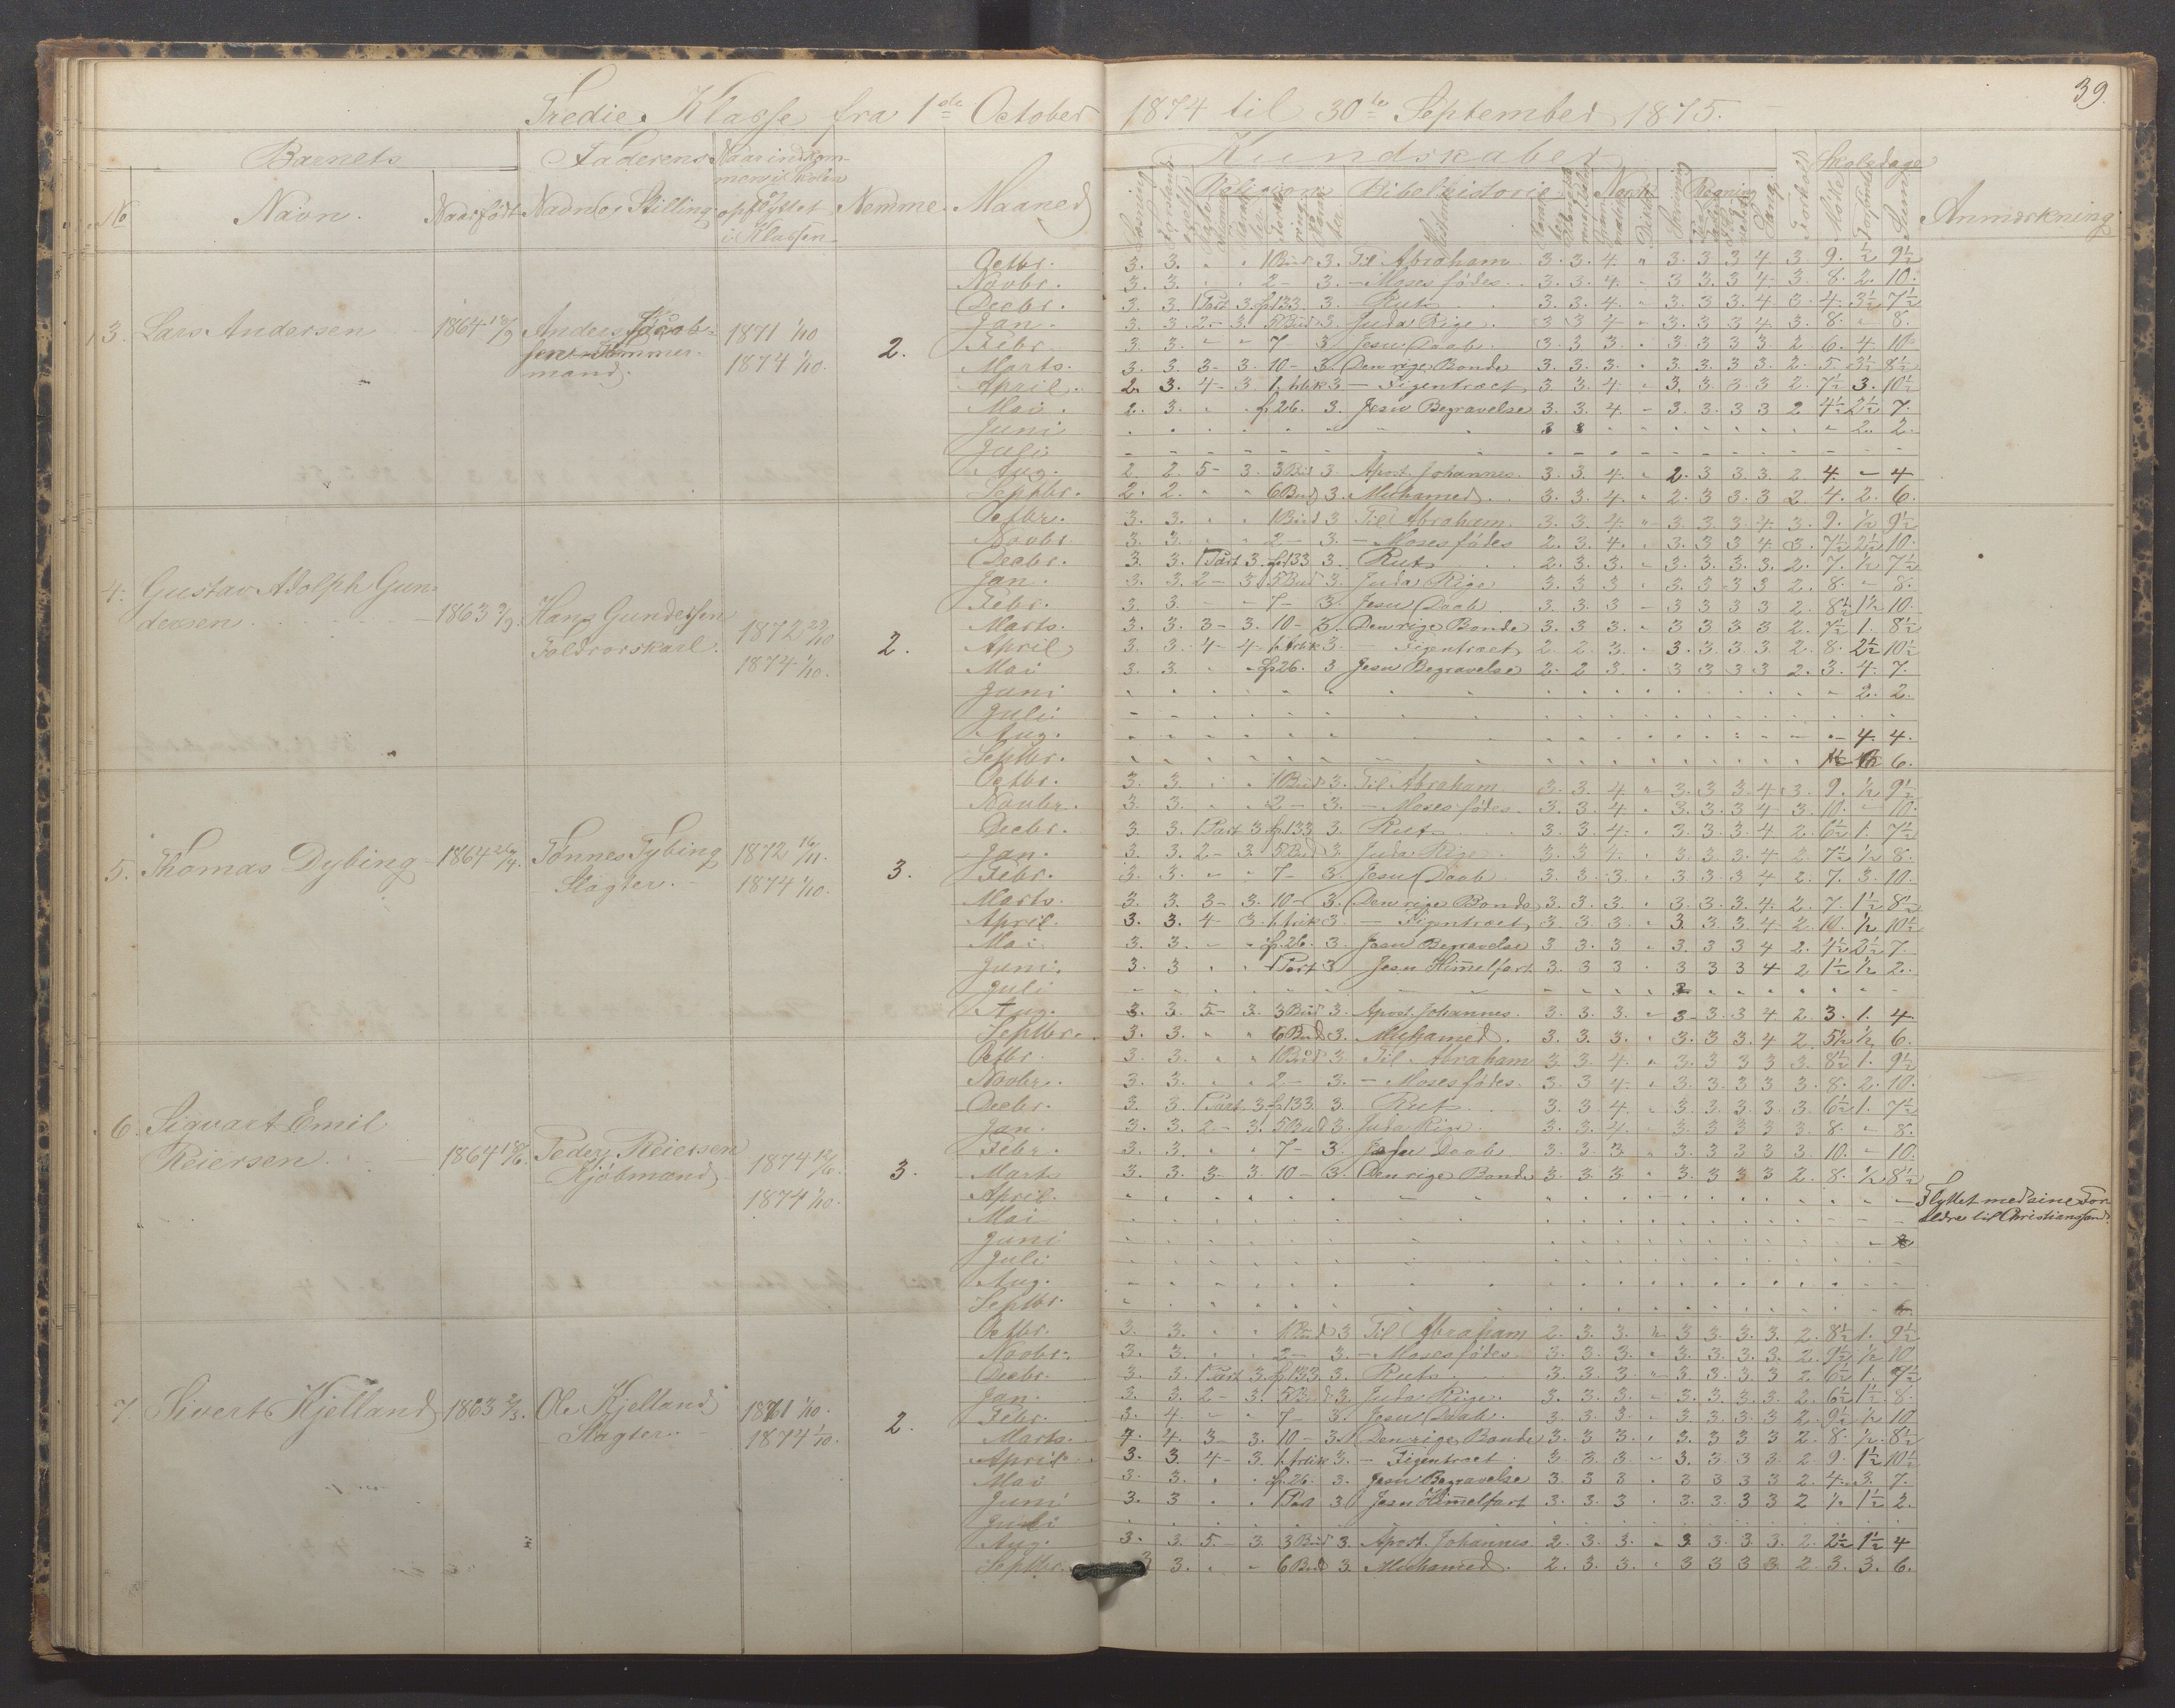 39.
Tredie Klasse fra 1ste October 1874 til 30te September 1875.
Barnets Faderens Naar indkom-
men i Skolen
Kundskaber Skoledage
No Navn. Naar født Navn og Stilling opflyttet
i Klassen Nemme. Maaned
Religion Bibelhistorie Norsk Regning Anmærkning
Octbr. 3. 3. „ „ 1 Bud 3. Til Abraham 3. 3. 4. „ 3. 3. 3 4 3. 9. ½ 9½
Novbr. 3. 3. „ „ 2 – 3. – Moses fødes. 3. 3. 4. „ 3 3. 3 4 3. 8. 2. 10.
Decbr. 3. 3. 1 Part 3. f. 133. 3. Ruth 3. 3. 4. „ 3. 3. 3. 4 3. 4. 3½ 7½
3. Lars Andersen 1864 Anders Jacob-
sen Tømmer-
mand. 1871 1/10
1874 1/10. 2.
Jan. 3. 3. 2 – 3. 5 Bud 3. Juda Rige. 3 3 4 „ 3. 3 3 4 3. 8. „ 8.
Febr. 3. 3. „ „ 7 – 3. Jesu Daab. 3. 3. 3. „ 3 3 3 3 2. 6. 4. 10
Marts. 3. 3. 3 – 3. 10 – 3. Den rige Bonde 3. 3. 3. „ 3. 3. 3. 3. 2. 5. 3½ 8½
April. 2. 3. 4 – 3 1. Artik 3 – Figentræet 3. 3. 4. „ 3. 3. 3. 3 2. 7½ 3. 10½
Mai. 2. 3. „ „ f. 26. 3. Jesu Begravelse 3. 3. 4 – 3. 3. 3 3 2 4½ 2½ 7.
Juni 2. 2.
Juli
Aug. 2. 2. 5 – 3. 3 Bud 3. Apost. Johannes. 3. 3. 4. „ 2. 3 3 3. 2. 4. – 4
Septbr. 2. 2. „ „ 6 Bud 3. Muhamed. 3. 3. 4. „ 2. 3 3. 3 2 4. 2. 6.
Octbr. 3. 3. „ „ 1 Bud 3 Til Abraham. 3. 3. 4. „ 3. 3. 3. 4. 3. 9. ½ 9½
Novbr. 3. 3. „ „ 2 – 3. – Moses fødes 2. 3. 4. „ 3. 3. 3 4. 3. 7½ 2½ 10.
Decbr. 3. 3. 1 Part 3. f. 133 3. Ruth 2. 3. 3. „ 3. 3. 3. 3. 2. 7. ½ 7½
4. Gustav Adolph Gun-
dersen 1863 Hans Gundersen
Toldrorskarl. 1872 22/10
1874 1/10. 2.
Jan. 3. 3. 2 – 3. 5 Bud 3. Juda Rige 3. 3. 3 „ 3 3 3 3 2. 8. – 8.
Febr. 3. 3. – – 7 – 3. Jesu Daab. 3. 3. 3 – 3 3 3 3 2. 8½ 1½ 10.
Marts. 3. 3. 3 – 3. 10 – 3. Den rige Bonde 3. 3 3. „ 3 3 3 3 2. 7½ 1. 8½
April 3. 3. 4 – 4 – 1. Artik 3. – Figentræet 2. 2. 3. „ 3. 3. 3. 3 2. 8. 2½ 10½
Mai 3. 3. „ „ f. 26. 3 Jesu Begravelse 2. 2 3. „ 3 3 3 3 2. 3. 4. 7.
Juni 2. 2.
Juli
Aug. 4. 4.
Septbr. 6.
Octbr. 3. 3. „ „ 1 Bud 3. Til Abraham 3. 3. 4 „ 3. 3. 3 4 3. 9. ½ 9½
Novbr. 3. 3. „ „ 2 – 3. – Moses fødes 3. 3. 4. „ 3. 3. 3 4 3. 10. – 10.
Decbr. 3. 3. 1 Part 3. f. 133 3. Ruth 3. 3. 4. „ 3. 3. 3 4 2. 6½ 1. 7½
5. Thomas Dybing 1864 Tønnes Tybing
Slagter. 1872 16/11.
1874 1/10. 3.
Jan. 3. 3. 2 – 3. 5 Bud 3. Juda Rige. 3. 3 4. „ 3. 3. 3. 4 2. 7½ ½ 8.
Febr. 3. 3. „ „ 7 – 3. Jesu Daab 3. 3. 3. „ 3. 3 3 4 2. 7. 3. 10.
Marts. 3. 3. 3 – 3. 10 – 3. Den rige Bonde 3. 3. 3. „ 3. 3. 3. 4. 2. 7. 1½ 8½
April. 3. 3. 4 – 3. 1. Artik 3. – Figentræet 3. 3. 3. „ 3. 3. 3. 4 2 10. ½ 10½
Mai. 3. 3. – „ f. 26. 3. Jesu Begravelse 3 3. 3 „ 3. 3 3 4 2. 4½ 2½ 7.
Juni. 3. 3 „ „ 1 Part 3 Jesu Himmelfart 3. 3 3 „ 3 3 3 4 2 1½ ½ 2.
Juli
Aug. 3. 3. 5 – 3. 3 Bud 3. Apost. Johannes. 3. 3. 3. – 3 3. 3 4 2. 3. 1. 4.
Septbr. 3. 3. „ „ 6 Bud 3. Muhamed. 3. 3. 3. „ 3. 3. 3. 4 2. 5½ ½ 6.
Octbr. 3. 3. „ „ 1 Bud 3. Til Abraham 3. 3. 4. „ 3. 3. 3 3 3. 8½ 1. 9½
Novbr. 3. 3. „ „ 2 – 3. – Moses fødes. 3. 3 4 „ 3. 3. 3 3 3. 8. 2. 10.
Decbr. 3. 3. 1 Part 3. f. 133. 3. Ruth 3. 3 4. „ 3. 3. 3. 3. 3. 6½ 1. 7½
6. Sigvart Emil
Reiersen 1864 18/6. Peder Reiersen
Kjøbmand 1874
1874 1/10. 3.
Jan. 3. 3. 2 – 3. 5 Bud 3. Juda Rige. 3. 3. 4. „ 3. 3 3 3 3. 8. „ 8.
Febr. 3. 3. „ „ 7 – 3. Jesu Daab 3. 3. 3. „ 3. 3 3 3 3. 10. – 10.
Marts 3. 3. 3 – 3. 10 – 3. Den rige Bonde 3. 3. 3 „ 3. 3 3 3 2. 8. ½ 8½
April. Flyttet med sine For-
Mai ældre til Christianssand.
Juni
Juli
Aug.
Septbr.
Octbr. 3. 3. „ „ 1 Bud 3 Til Abraham 2. 3. 3. „ 3 3. 3. 3. 2. 8½ 1. 9½
Novbr. 3. 3. „ „ 2 – 3. – Moses fødes 3. 3. 3. „ 3. 3. 3. 3. 2. 9½ ½ 10
Decbr. 3. 3. 1 Part 3. f. 133 3. Ruth 3. 3. 3 „ 3. 3. 3. 3 2 6½ 1. 7½
7 Sivert Kjelland 1863 Ole Kjelland
Slagter. 1871 1/10.
1874 1/10. 2.
Jan. 3. 3. 2 – 3. 5 Bud 3. Juda Rige. 3. 3. 3. – 3. 3. 3. 3 2. 6½ 1½ 8.
Febr. 3. 4. – „ 7 – 3. Jesu Daab. 3. 3. 3. „ 3. 3. 3. 3 2. 9½ ½ 10
Marts. 4. 4. 3 – 3. 10 – 3. Den rige Bonde 3. 3. 3. „ 3. 3 3 3 2. 8. ½ 8½
April 3. 3. 4 – 3. 1. Artik 3. – Figentræet 3. 3. 3. – 3. 3. 3. 3. 2. 9. 1½ 10½
Mai 3. 3. „ „ f. 26. 3. Jesu Begravelse 3. 3 3 „ 3 3 3 3 2. 4. 3. 7.
Juni 3. 3 „ „ 1 Part 3 Jesu Himmelfart 3. 3. 3 „ 3. 3. 3 3 2 ½ 1½ 2.
Juli
Aug. 3. 3. 5 – 3. 3 Bud 3 Apost. Johannes 2. 3. 3. „ 3 3. 3. 3. 2. 2½ 1½ 4
Septbr. 3 3. „ „ 6 Bud 3. Muhamed. 2. 3. 3. „ 3 3 3 3. 2. 3. 3. 6.